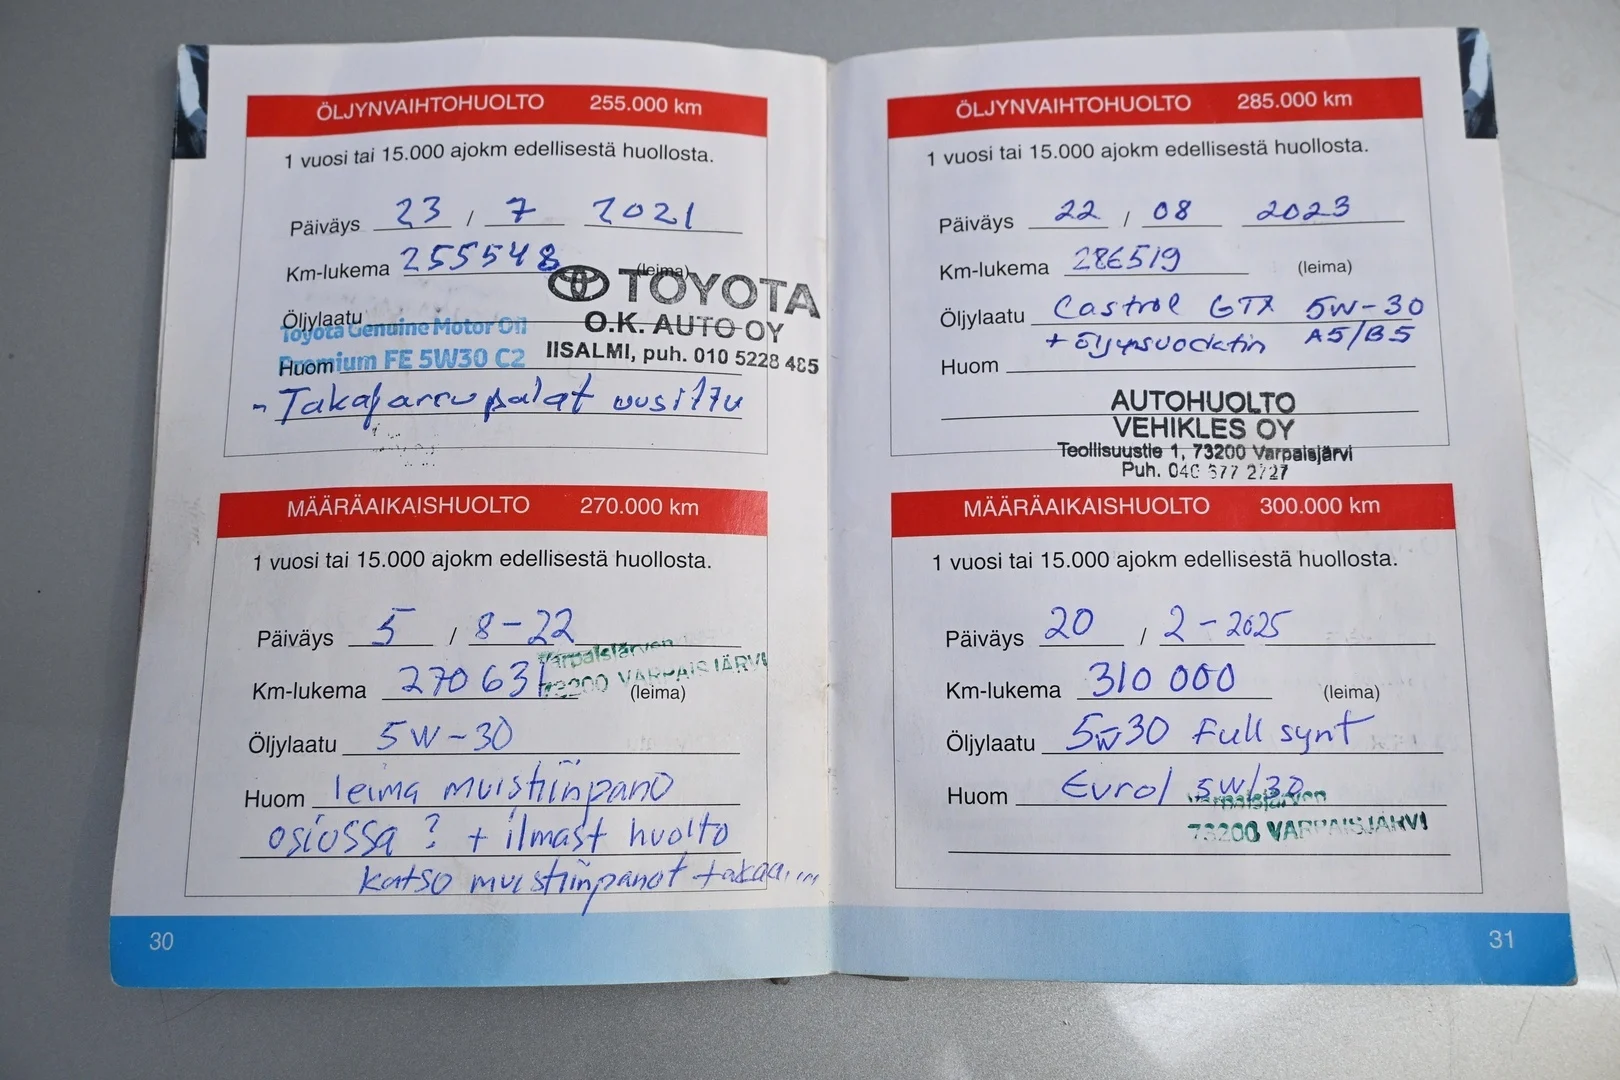 ÖLJYNVAIHTOHUOLTO 255.000 km
1 vuosi tai 15.000 ajokm edellisestä huollosta.
Päiväys 23 / 7 2021
Km-lukema 255548 (leima)
TOYOTA
O.K. AUTO OY
IISALMI, puh. 010 5228 485
Öljylaatu
Toyota Genuine Motor Oil
Premium FE 5W30 C2
Huom
- Takajarrupalat uusittu
MÄÄRÄAIKAISHUOLTO 270.000 km
1 vuosi tai 15.000 ajokm edellisestä huollosta.
Päiväys 5 / 8-22
Varpaisjärven
73200 VARPAISJÄRVI
Km-lukema 270631 (leima)
Öljylaatu 5W-30
Huom leima muistiinpano
osiossa ? + ilmast huolto
katso muistiinpanot takaa....
30
ÖLJYNVAIHTOHUOLTO 285.000 km
1 vuosi tai 15.000 ajokm edellisestä huollosta.
Päiväys 22 / 08 2023
Km-lukema 286519 (leima)
Öljylaatu Castrol GTX 5W-30
+ öljynsuodatin A5/B5
Huom
AUTOHUOLTO
VEHIKLES OY
Teollisuustie 1, 73200 Varpaisjärvi
Puh. 040 577 2727
MÄÄRÄAIKAISHUOLTO 300.000 km
1 vuosi tai 15.000 ajokm edellisestä huollosta.
Päiväys 20 / 2-2025
Km-lukema 310 000 (leima)
Öljylaatu 5w30 Full synt
Huom Eurol 5W/30
Varpaisjärven
73200 VARPAISJÄRVI
31